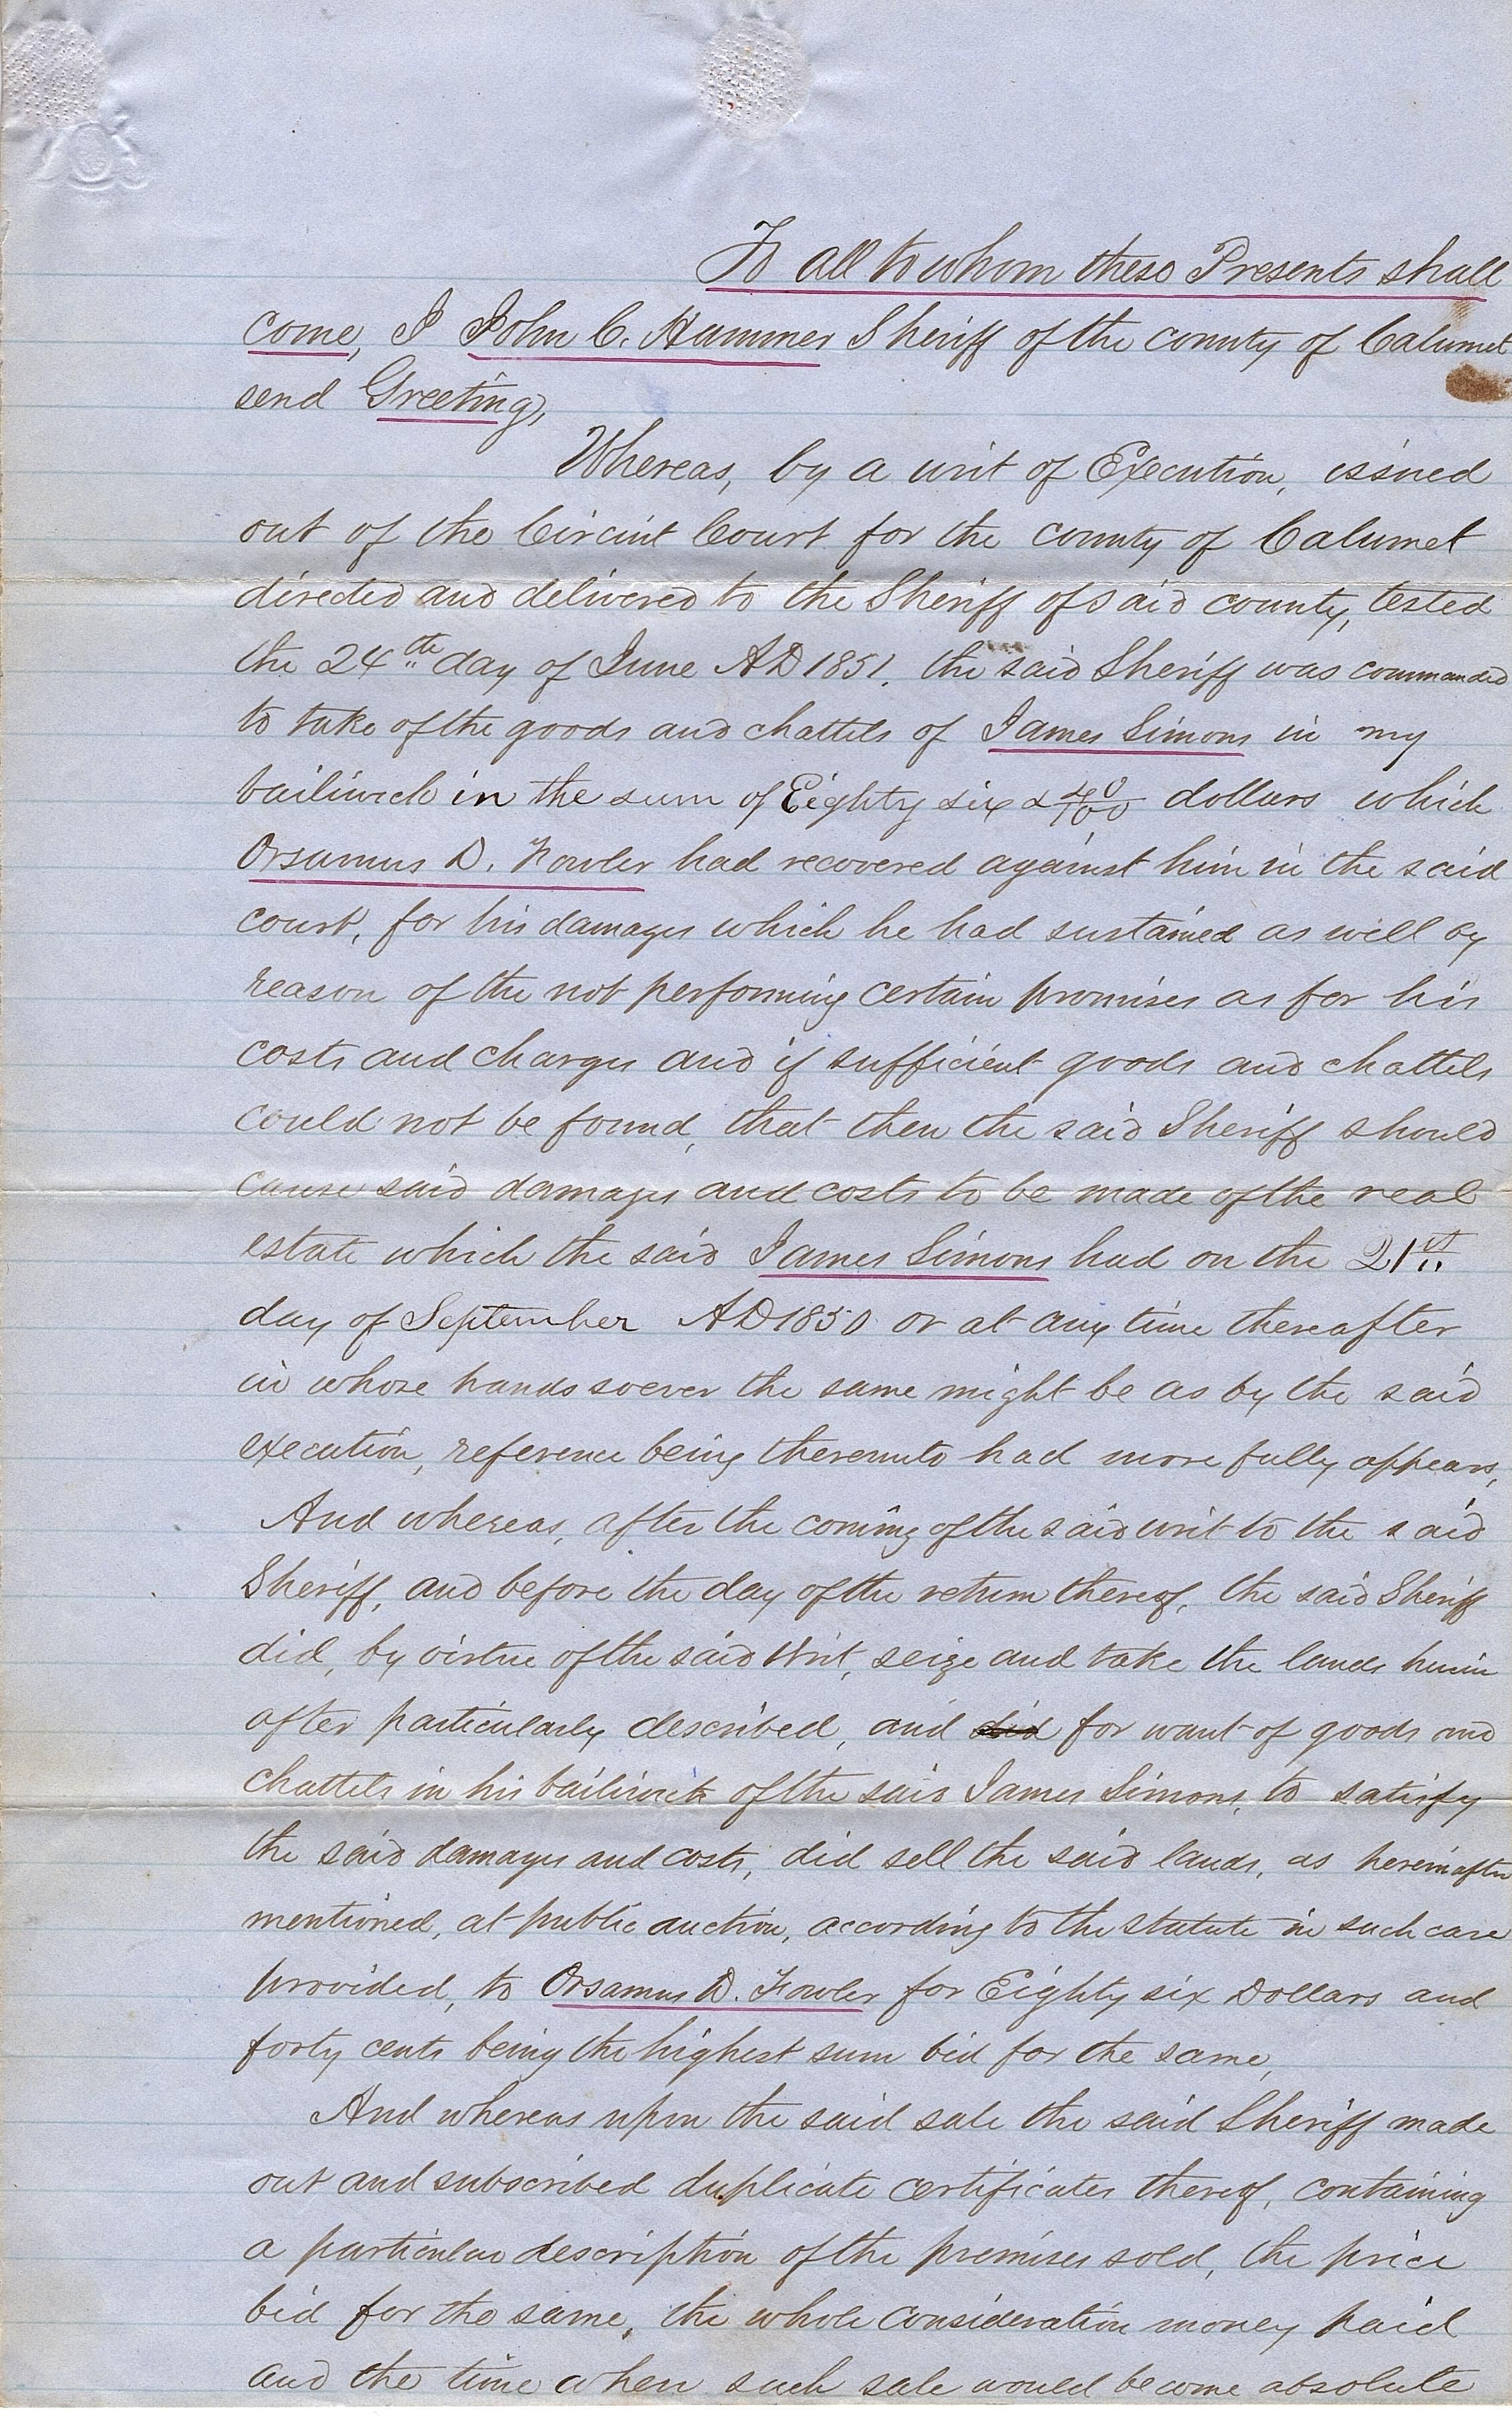 To all to whom these Presents shall
come, I John C. Hammer Sheriff of the county of Calumet
send Greeting,
Whereas, by a writ of Execution, issued
out of the Circuit Court for the county of Calumet
directed and delivered to the Sheriff of said county, tested
the 24th day of June AD 1851. the said Sheriff was commanded
to take of the goods and chattels of James Simons in my
bailiwick in the sum of Eighty six & 40/100 dollars which
Orsamus D. Fowler had recovered against him in the said
court, for his damages which he had sustained as well by
reason of the not performing certain promises as for his
costs and charges and if sufficient goods and chattels
could not be found, that then the said Sheriff should
cause said damages and costs to be made of the real
estate which the said James Simons had on the 21st
day of September AD 1850 or at any time thereafter
in whose hands soever the same might be as by the said
execution, reference being thereunto had more fully appears,
And whereas, after the coming of the said writ to the said
Sheriff, and before the day of the return thereof, the said Sheriff
did, by virtue of the said Writ, seize and take the lands herein
after particularly described, and did for want of goods and
chattels in his bailiwick of the said James Simons, to satisfy
the said damages and costs, did sell the said lands, as hereinafter
mentioned, at public auction, according to the statute in such case
provided, to Orsamus D. Fowler for Eighty six Dollars and
forty cents being the highest sum bid for the same,
And whereas upon the said sale the said Sheriff made
out and subscribed duplicate certificates thereof, containing
a particular description of the premises sold, the price
bid for the same, the whole consideration money paid
and the time when such sale would become absolute